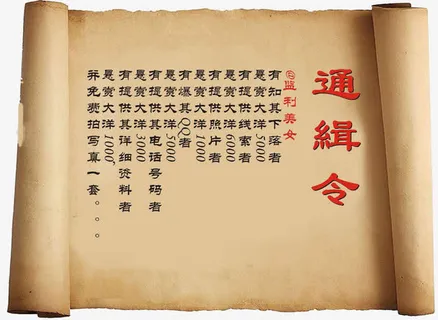 通緝令
@监利美女
有知其下落者
悬赏大洋5000
有提供线索者
悬赏大洋6000
有提供照片者
悬赏大洋1000
有爆其QQ者
悬赏大洋5000
有提供其电话号码者
悬赏大洋3000
有提供其详细资料者
悬赏大洋1000
并免费拍写真一套。。。